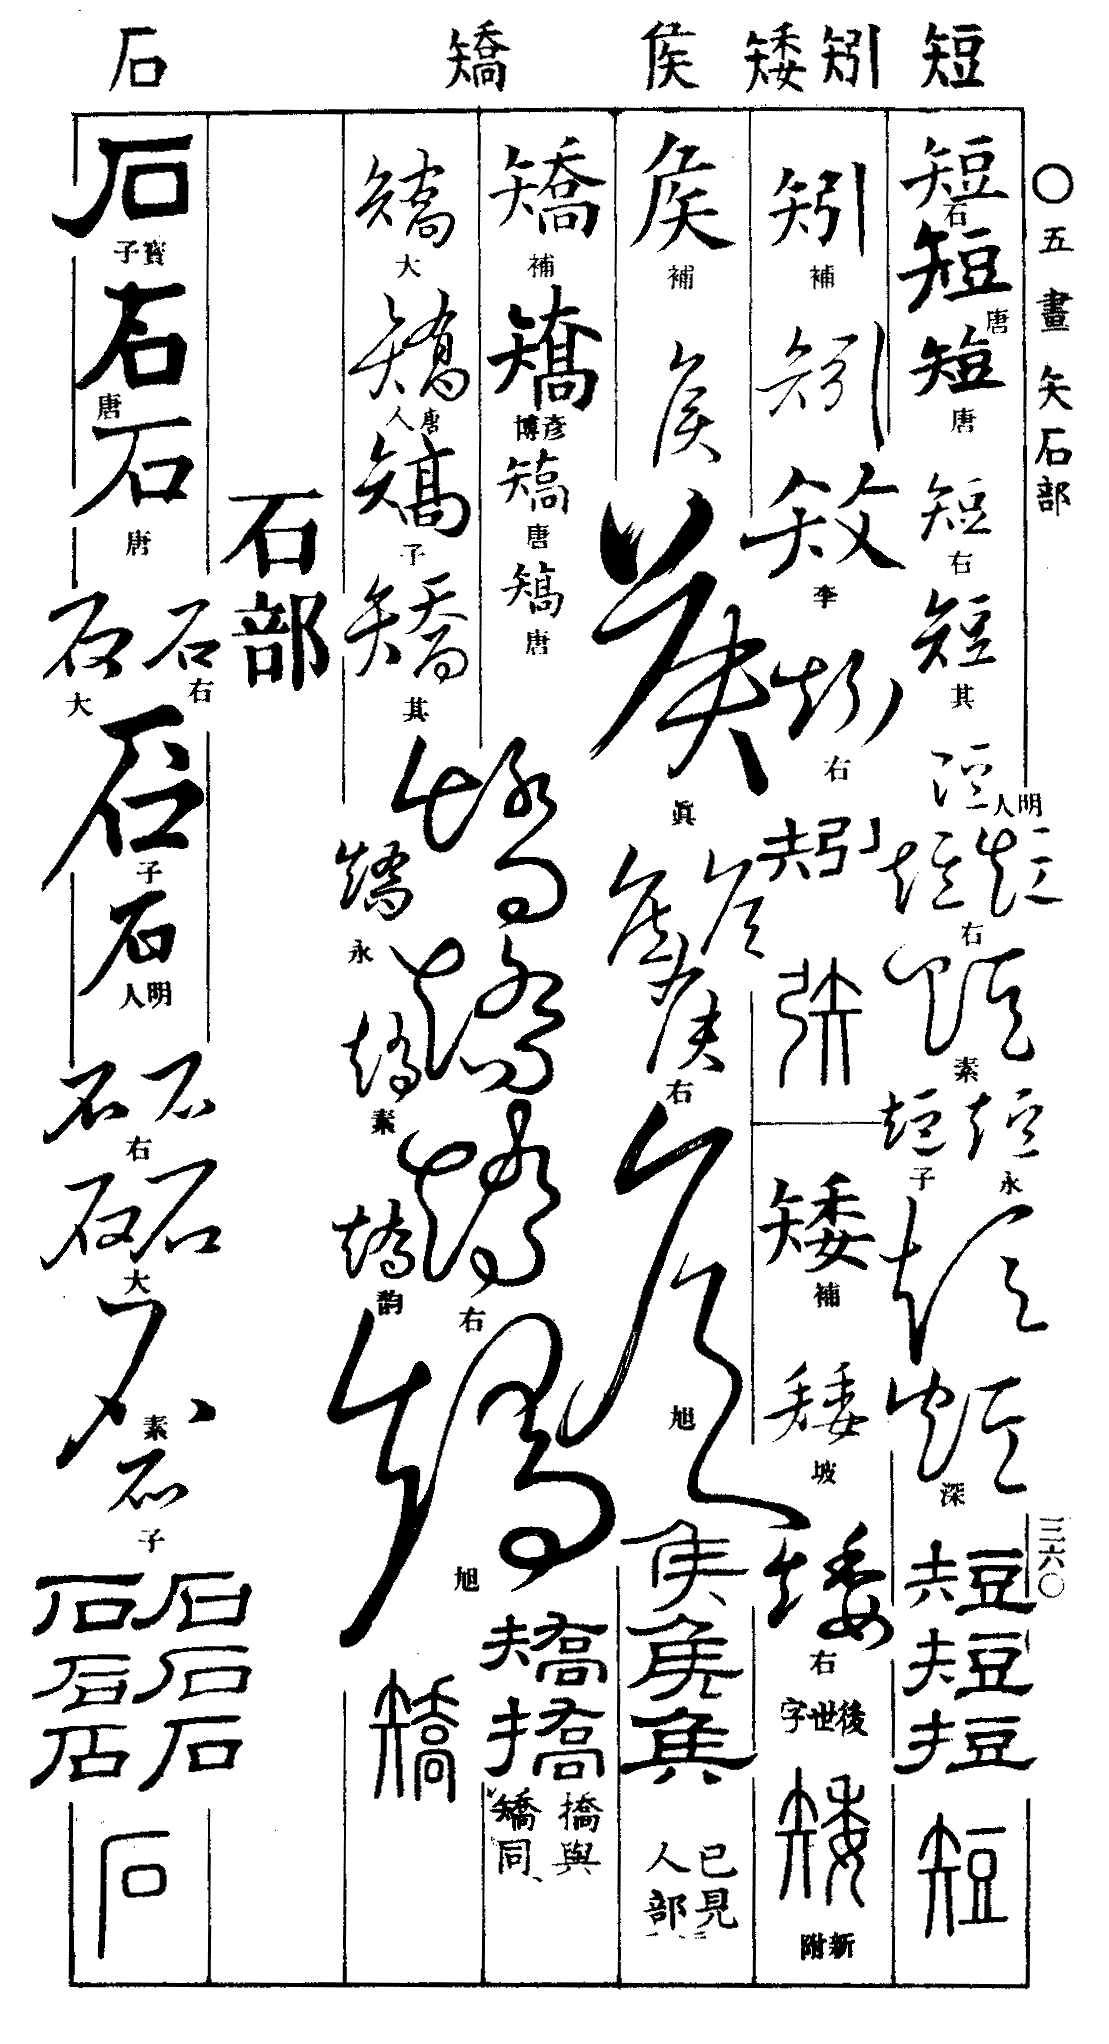 短
矧
矮
矦
矯
石
〇五畫 矢石部
三六〇
短
石
短
唐
短
唐
短
右
短
其
短
明人
短
短
右
短
素
短
永
短
子
短
短
深
短
短
短
短
矧
補
矧
矧
李
矧
右
矧
矧
矮
補
矮
坡
矮
右
後世字
矮
新附
矦
補
矦
矦
眞
矦
矦
矦
右
矦
矦
旭
矦
矦
矦
已見
人部
矯
補
矯
彦博
矯
唐
矯
唐
矯
矯
矯
右
矯
旭
矯
撟
撟與
矯同
矯
大
矯
唐人
矯
子
矯
其
矯
永
矯
素
矯
韵
矯
石部
石
寳子
石
唐
石
唐
石
右
石
大
石
子
石
明人
石
石
右
石
石
大
石
素
石
子
石
石
石
石
石
石
石